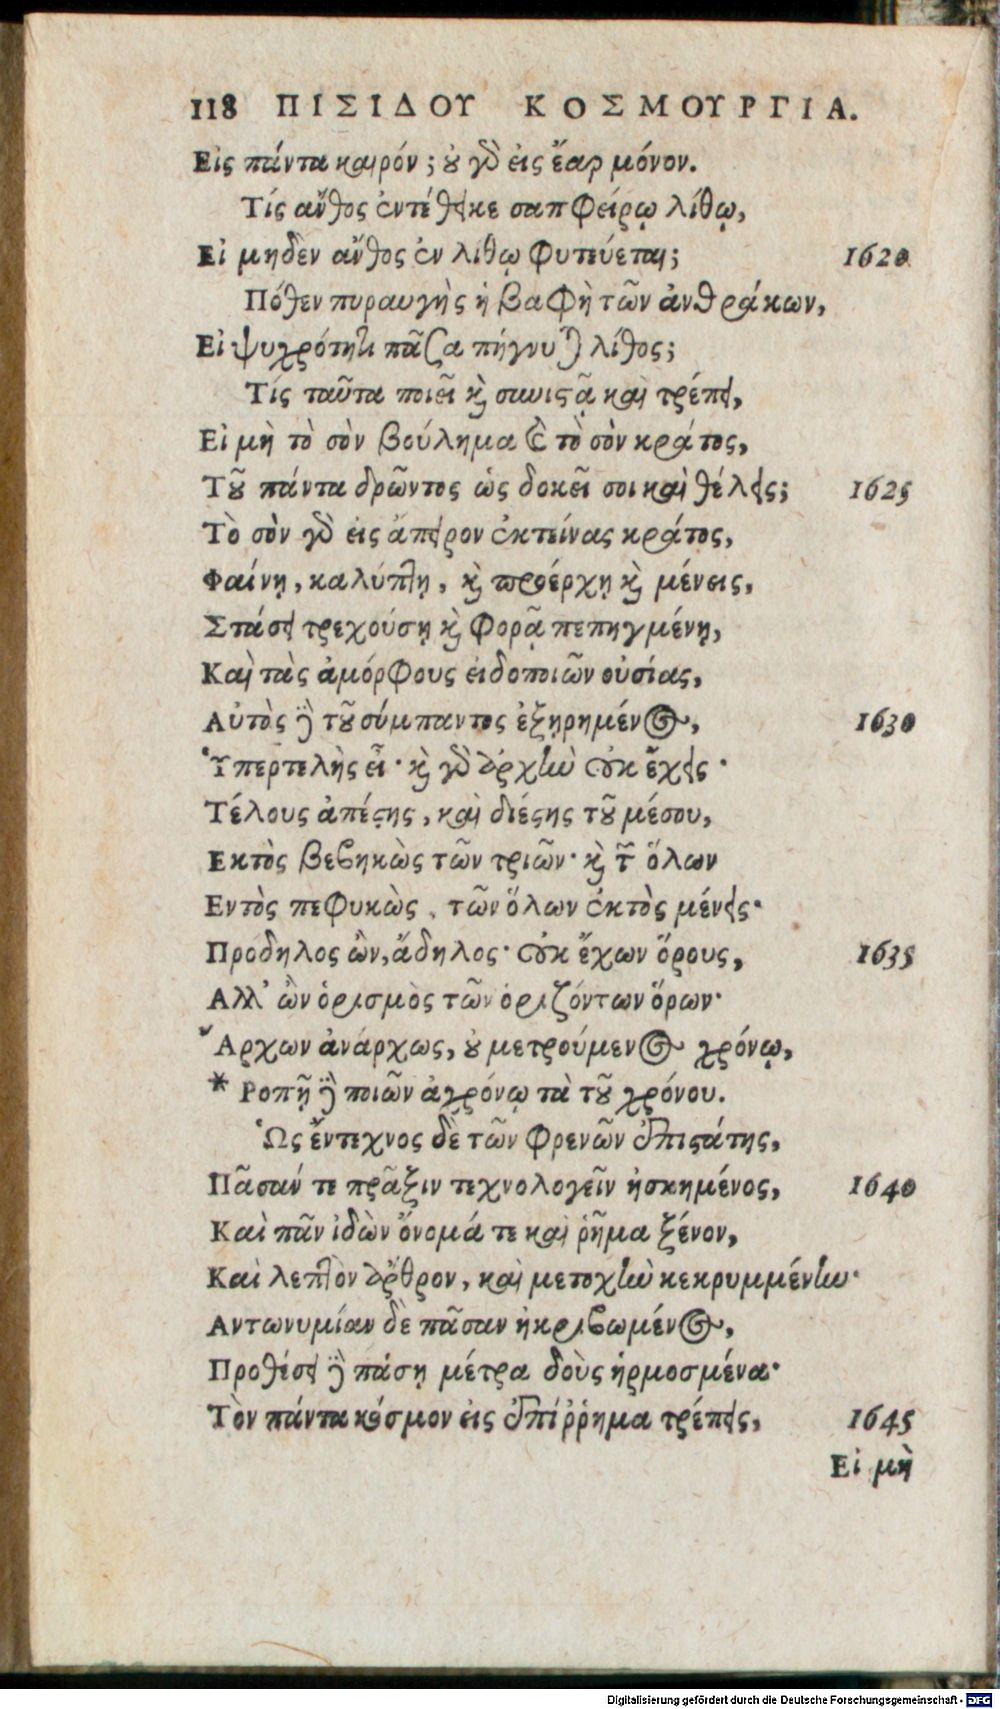 118 ΠΙΣΙΔΟΥ ΚΟΣΜΟΥΡΓΙΑ.
Εἰς πάντα καιρόν; οὐ γὰρ εἰς ἔαρ μόνον.
Τίς ἄνθος ἐντέθεικε σαπφείρῳ λίθῳ,
Εἰ μηδεν ἄνθος ἐν λίθῳ φυτεύεται; 1620
Πόθεν πυραυγὴς ἡ βαφὴ τῶν ἀνθράκων,
Εἰ ψυχρότητι πᾶσα πήγνυται λίθος;
Τίς ταῦτα ποιεῖ καὶ συνιστᾷ καὶ τρέπει,
Εἰ μὴ τὸ σὸν βούλημα καὶ τὸ σὸν κράτος,
Τοῦ πάντα δρῶντος ὡς δοκεῖ σοι καὶ θέλεις; 1625
Τὸ σὸν γὰρ εἰς ἄπειρον ἐκτείνας κράτος,
Φαίνῃ, καλύπτῃ, καὶ προέρχῃ καὶ μένεις,
Στάσει τρεχούσῃ καὶ φορᾷ πεπηγμένῃ,
Καὶ τὰς ἀμόρφους εἰδοποιῶν οὐσίας,
Αὐτὸς δὲ τοῦ σύμπαντος ἐξῃρημένος, 1630
Ὑπερτελὴς εἶ· καὶ γὰρ ἀρχὴν οὐκ ἔχεις·
Τέλους ἀπέστης, καὶ διέστης τοῦ μέσου,
Εκτὸς βεβηκὼς τῶν τριῶν· καὶ τῶν ὅλων
Εντὸς πεφυκὼς, τῶν ὅλων ἐκτὸς μένεις·
Πρόδηλος ὢν, ἄδηλος· οὐκ ἔχων ὅρους, 1635
Αλλ' ὢν ὁρισμὸς τῶν ὁριζόντων ὅρων·
Ἄρχων ἀνάρχως, οὐ μετρούμενος χρόνῳ,
* Ροπῇ δὲ ποιῶν ἀχρόνῳ τὰ τοῦ χρόνου.
Ὡς ἔντεχνος δὲ τῶν φρενῶν ἐπιστάτης,
Πᾶσάν τε πρᾶξιν τεχνολογεῖν ἠσκημένος, 1640
Καὶ πᾶν ἰδὼν ὄνομά τε καὶ ῥῆμα ξένον,
Καὶ λεπτὸν ἄρθρον, καὶ μετοχὴν κεκρυμμένην·
Αντωνυμίαν δὲ πᾶσαν ἠκριβωμένος,
Προθέσει δὲ πάσῃ μέτρα δοὺς ἡρμοσμένα·
Τὸν πάντα κόσμον εἰς ἐπίῤῥημα τρέπεις, 1645
Εἰ μὴ
Digitalisierung gefördert durch die Deutsche Forschungsgemeinschaft - DFG